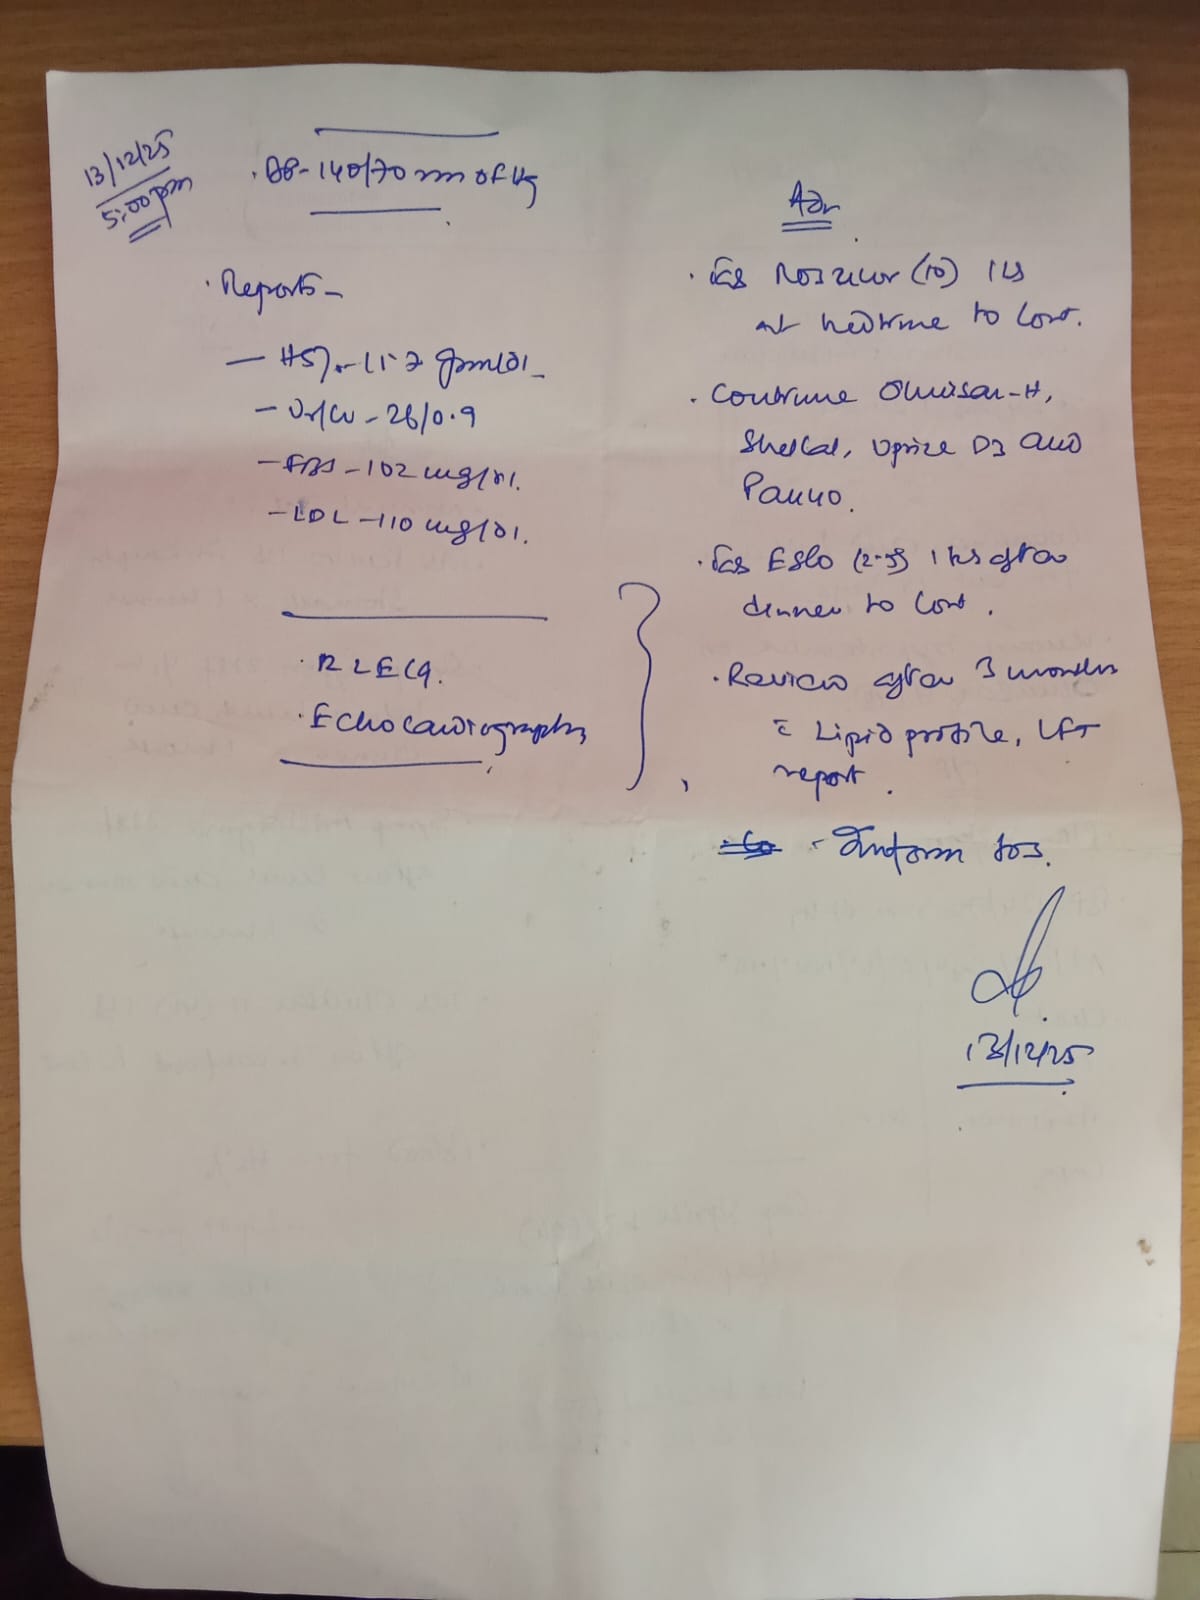 13/12/25
5:00pm
· BP- 140/70 mm of Hg
· Reports -
- Hb - 11.2 gm/dl
- Ur/Cr - 26/0.9
- FBS - 102 mg/dl.
- LDL - 110 mg/dl.
· R L ECG.
· Echocardiography
Adv
· Tab Rozucor (10) 1 tab
at bedtime to Cont.
· Continue Olmisar-H,
Shelcal, Uprise D3 and
Pan 40.
· Tab Eslo (2.5) 1 tab after
dinner to Cont.
· Review after 3 months
c̄ Lipid profile, LFT
report.
· Inform SOS.
13/12/25